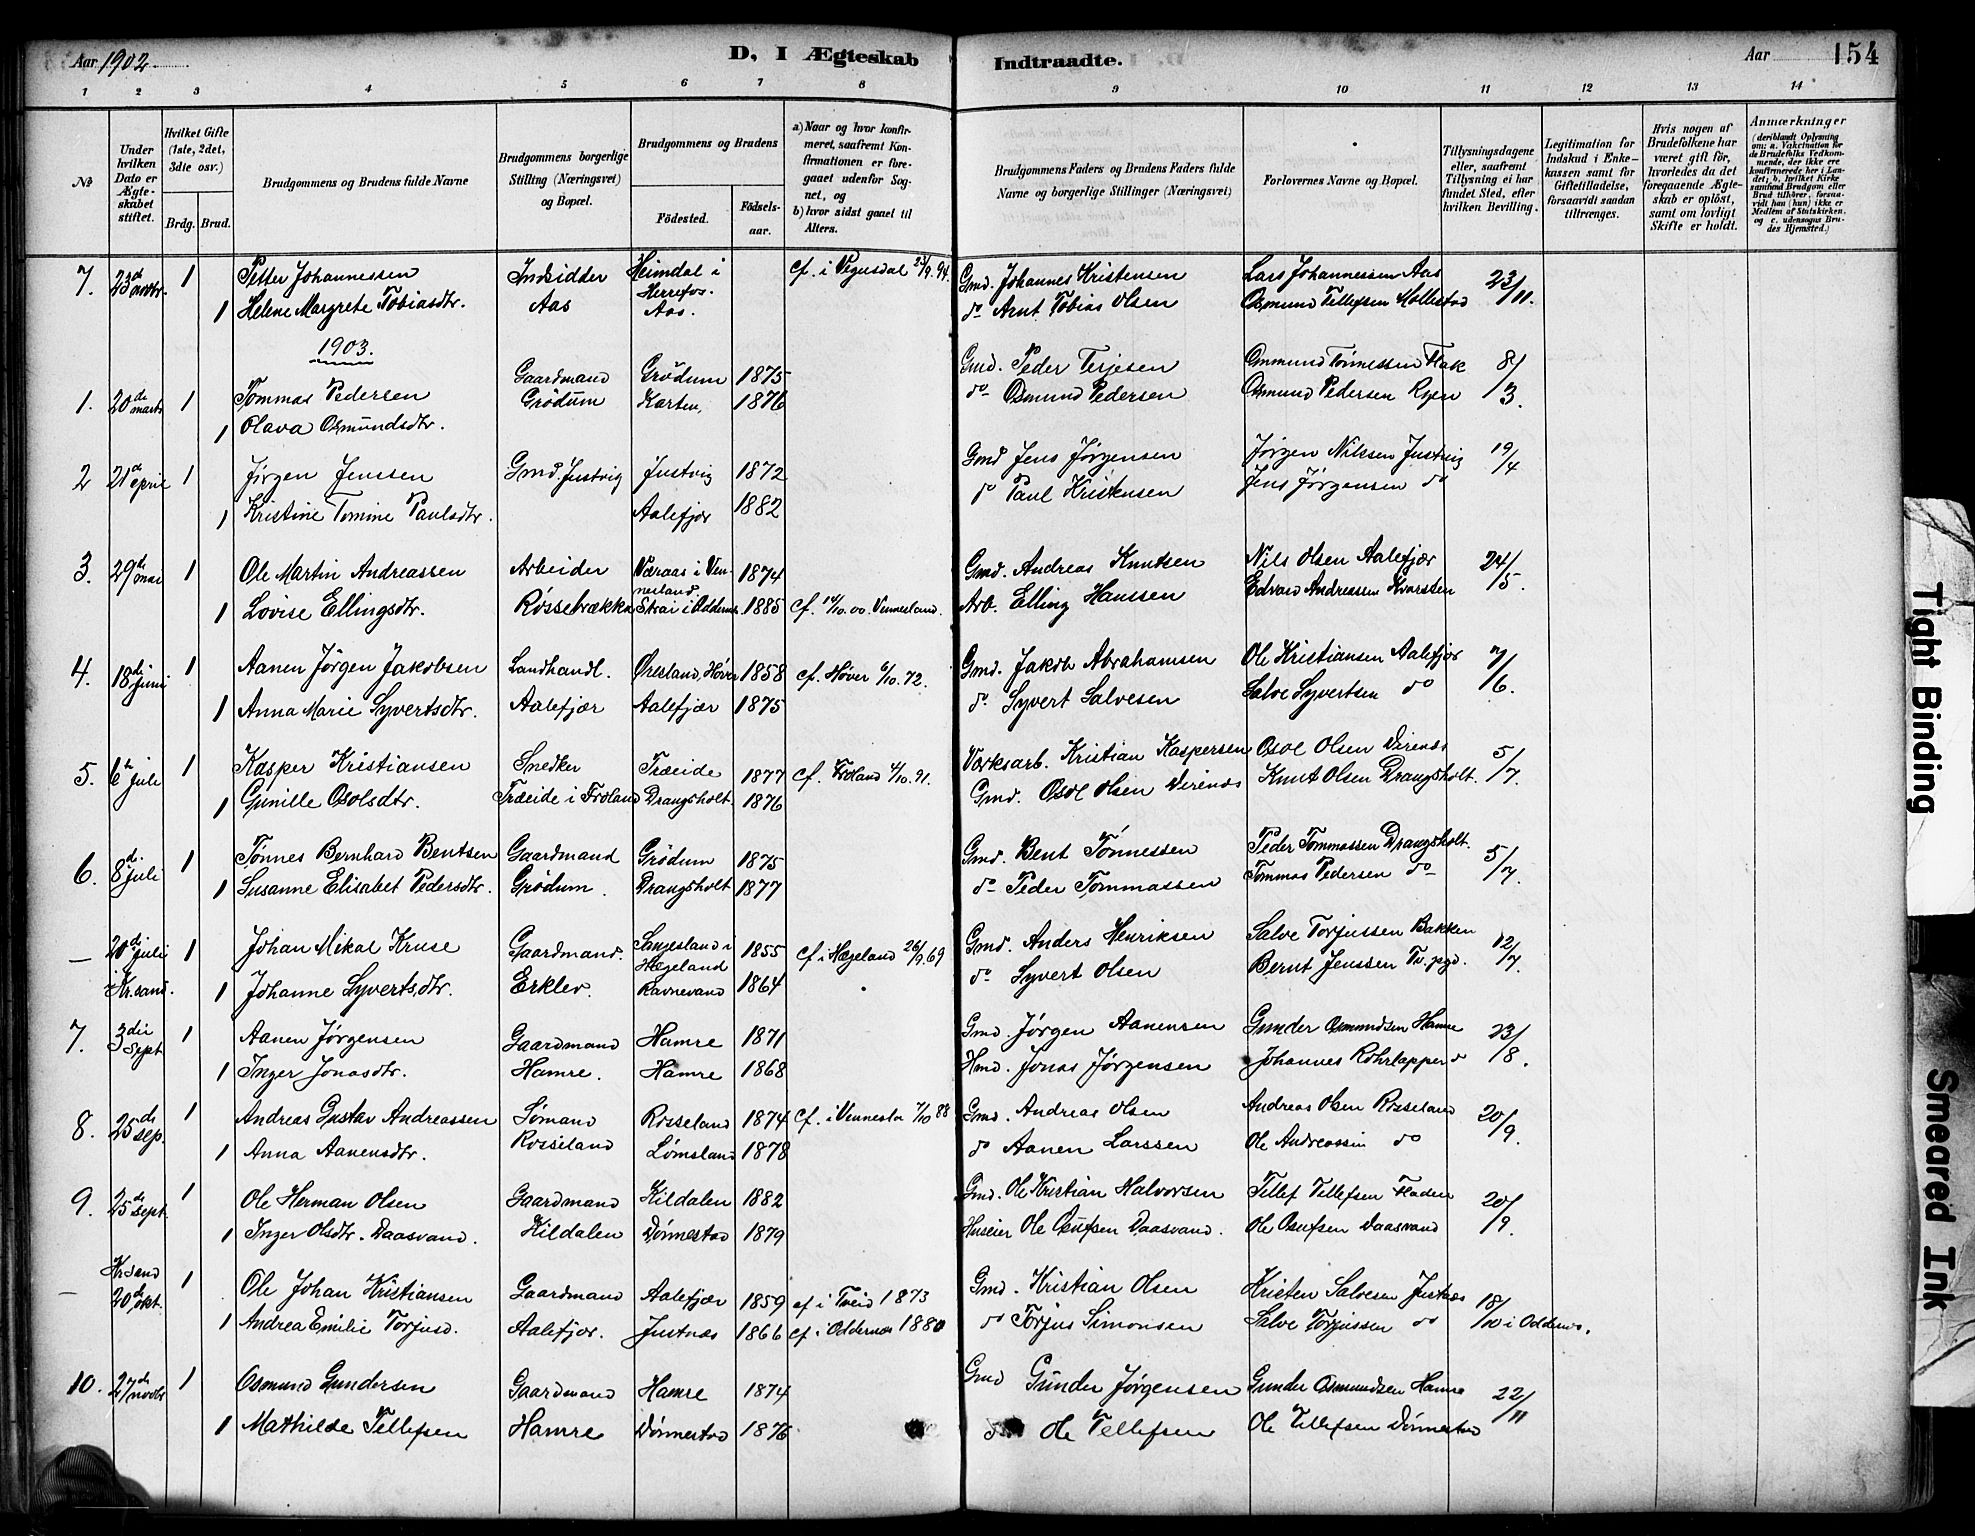 Aar 1902.
D, I Ægteskab Indtraadte.
Aar 154
1 2 3 4 5 6 7 8 9 10 11 12 13 14
№
Under hvilken Dato er Ægteskabet stiftet.
Hvilket Gifte (1ste, 2det, 3die osv.)
Brdg. Brud.
Brudgommens og Brudens fulde Navne
Brudgommens borgerlige Stilling (Næringsvei) og Bopæl.
Brudgommens og Brudens
Födested.
Födsels-aar.
a) Naar og hvor konfirmeret, saafremt Konfirmationen er foregaaet udenfor Sognet, og
b) hvor sidst gaaet til Alters.
Brudgommens Faders og Brudens Faders fulde Navne og borgerlige Stillinger (Næringsvei)
Forlovernes Navne og Bopæl.
Tillysningsdagene eller, saafremt Tillysning ei har fundet Sted, efter hvilken Bevilling.
Legitimation for Indskud i Enkekassen samt for Giftetilladelse, forsaavidt saadan tiltrænges.
Hvis nogen af Brudefolkene har været gift för, hvorledes da det foregaaende Ægteskab er oplöst, samt om lovligt Skifte er holdt.
Anmærkninger
(deriblandt Oplysning om: a. Vakcination for de Brudefolks Vedkommende, der ikke ere konfirmerede her i Landet; b. hvilket Kirkesamfund Brudgom eller Brud tilhörer, forsaavidt han (hun) ikke er Medlem af Statskirken, og c. udensogns Brudes Hjemsted.)
7. 23de novbr. 1 Petter Johannessen Indsidder Heimdal i Herrefos. cf. i Vegusdal 94. Gmd. Johannes Kristensen Lars Johannessen Aas 23/11.
1 Helene Margrete Tobiasdtr. Aas Aas. do Arnt Tobias Olsen Osmund Tellefsen Mollestad
1903.
1. 20de marts 1 Tommas Pedersen Gaardmand Grødum 1875 Gmd. Peder Terjesen Ommund Tønnessen Flak 8/3.
1 Olava Osmundsdtr. Grødum Karten, 1876 do Osmund Pedersen Osmund Pedersen Ryen
2 21de april 1 Jørgen Jenssen Gmd. Justvig Justvig 1872 Gmd Jens Jørgensen Jørgen Nilssen Justvig 19/4
1 Kristine Tomine Paulsdtr. Aalefjær 1882 do Paul Kristensen Jens Jørgensen do
3. 29de mai 1 Ole Martin Andreassen Arbeider Væraas i Vennesland. 1874 Gmd. Andreas Knutsen Nils Olsen Aalefjær 24/5.
1 Lovise Ellingsdtr. Røssebrække Strai i Oddernes 1885 cf. 14/10.00. Vennesland. Arb. Elling Hanssen Edvard Andreassen Kvarsten
4. 18de Juni 1 Aanen Jørgen Jakobsen Landhandl. Øresland, Høver 1858 cf. Høver 6/10.72. Gmd. Jakob Abrahamsen Ole Kristiansen Aalefjær 7/6.
1 Anna Marie Syvertsdtr. Aalefjær Aalefjær 1875 do. Syvert Salvesen Salve Syvertsen do
5. 6te Juli 1 Kasper Kristiansen Snedker Træeide 1877 cf. Froland 4/10.91. Værksarb. Kristian Kaspersen Osol Olsen Verenes 5/7.
1 Gunille Osolsdtr. Træeide i Froland Drangsholt 1876 Gmd. Osol Olsen Verenes Knut Olsen Drangsholt.
6. 8de Juli 1 Tønnes Bernhard Bentsen Gaardmand Grødum 1875 Gmd. Bent Tønnessen Peder Tommassen Drangsholt. 5/7.
1 Susanne Elisabet Pedersdtr. Grødum. Drangsholt 1877 do Peder Tommassen Tommas Pedersen do
— 20de juli i Kr.sand. 1 Johan Mikal Kruse Gaardmand. Sangesland i Hægeland 1855 cf i Hægeland 26/9.69 Gmd. Anders Henriksen Salve Torjussen Bakken 12/7.
1 Johanne Syvertsdtr. Erklev. Ravnevand 1864 do Syvert Olsen Bernt Jenssen Tv. pgd.
7. 3die Sept 1 Aanen Jørgensen Gaardmand Hamre 1871 Gmd. Jørgen Aanensen Gunder Osmundsen Hamre 23/8.
1 Inger Jonasdtr. Hamre. Hamre 1868 Hmd. Jonas Jørgensen Johannes Rohrlapper do
8. 25de sep. 1 Andreas Gustav Andreassen Sømand Røsseland 1874 cf. i Vennesla 7/10 88 Gmd. Andreas Olsen Andreas Olsen Røsseland 20/9.
1 Anna Aanensdtr. Røsseland Lømsland 1878 do Aanen Larssen Ole Andreassen do
9. 25de sept. 1 Ole Herman Olsen Gaardmand Kildalen 1882 Gmd. Ole Kristian Halvorsen Tellef Tellefsen Fladen 20/9.
1 Inger Olsdtr. Daasvand. Kildalen Dønnestad 1879 Huseier Ole Osufsen Daasvand. Ole Osufsen Daasvand
— Kr.sand 20de okt. 1 Ole Johan Kristiansen Gaardmand Aalefjær 1859 cf i Tveid 1873 Gmd. Kristian Olsen Kristen Salvesen Justnæs 18/10 i Oddernes.
1 Andrea Emilie Torjusd. Aalefjær. Justnæs 1866 cf. i Oddernes 1880 do Torjus Simonsen Salve Torjussen do
10. 27de novbr 1 Osmund Gundersen Gaardmand Hamre 1874 Gmd Gunder Jørgensen Gunder Osmundsen Hamre 22/11
1 Mathilde Tellefsen Hamre Dønnestad 1876 do Ole Tellefsen Ole Tellefsen Dønnestad
Tight Binding
Smeared Ink